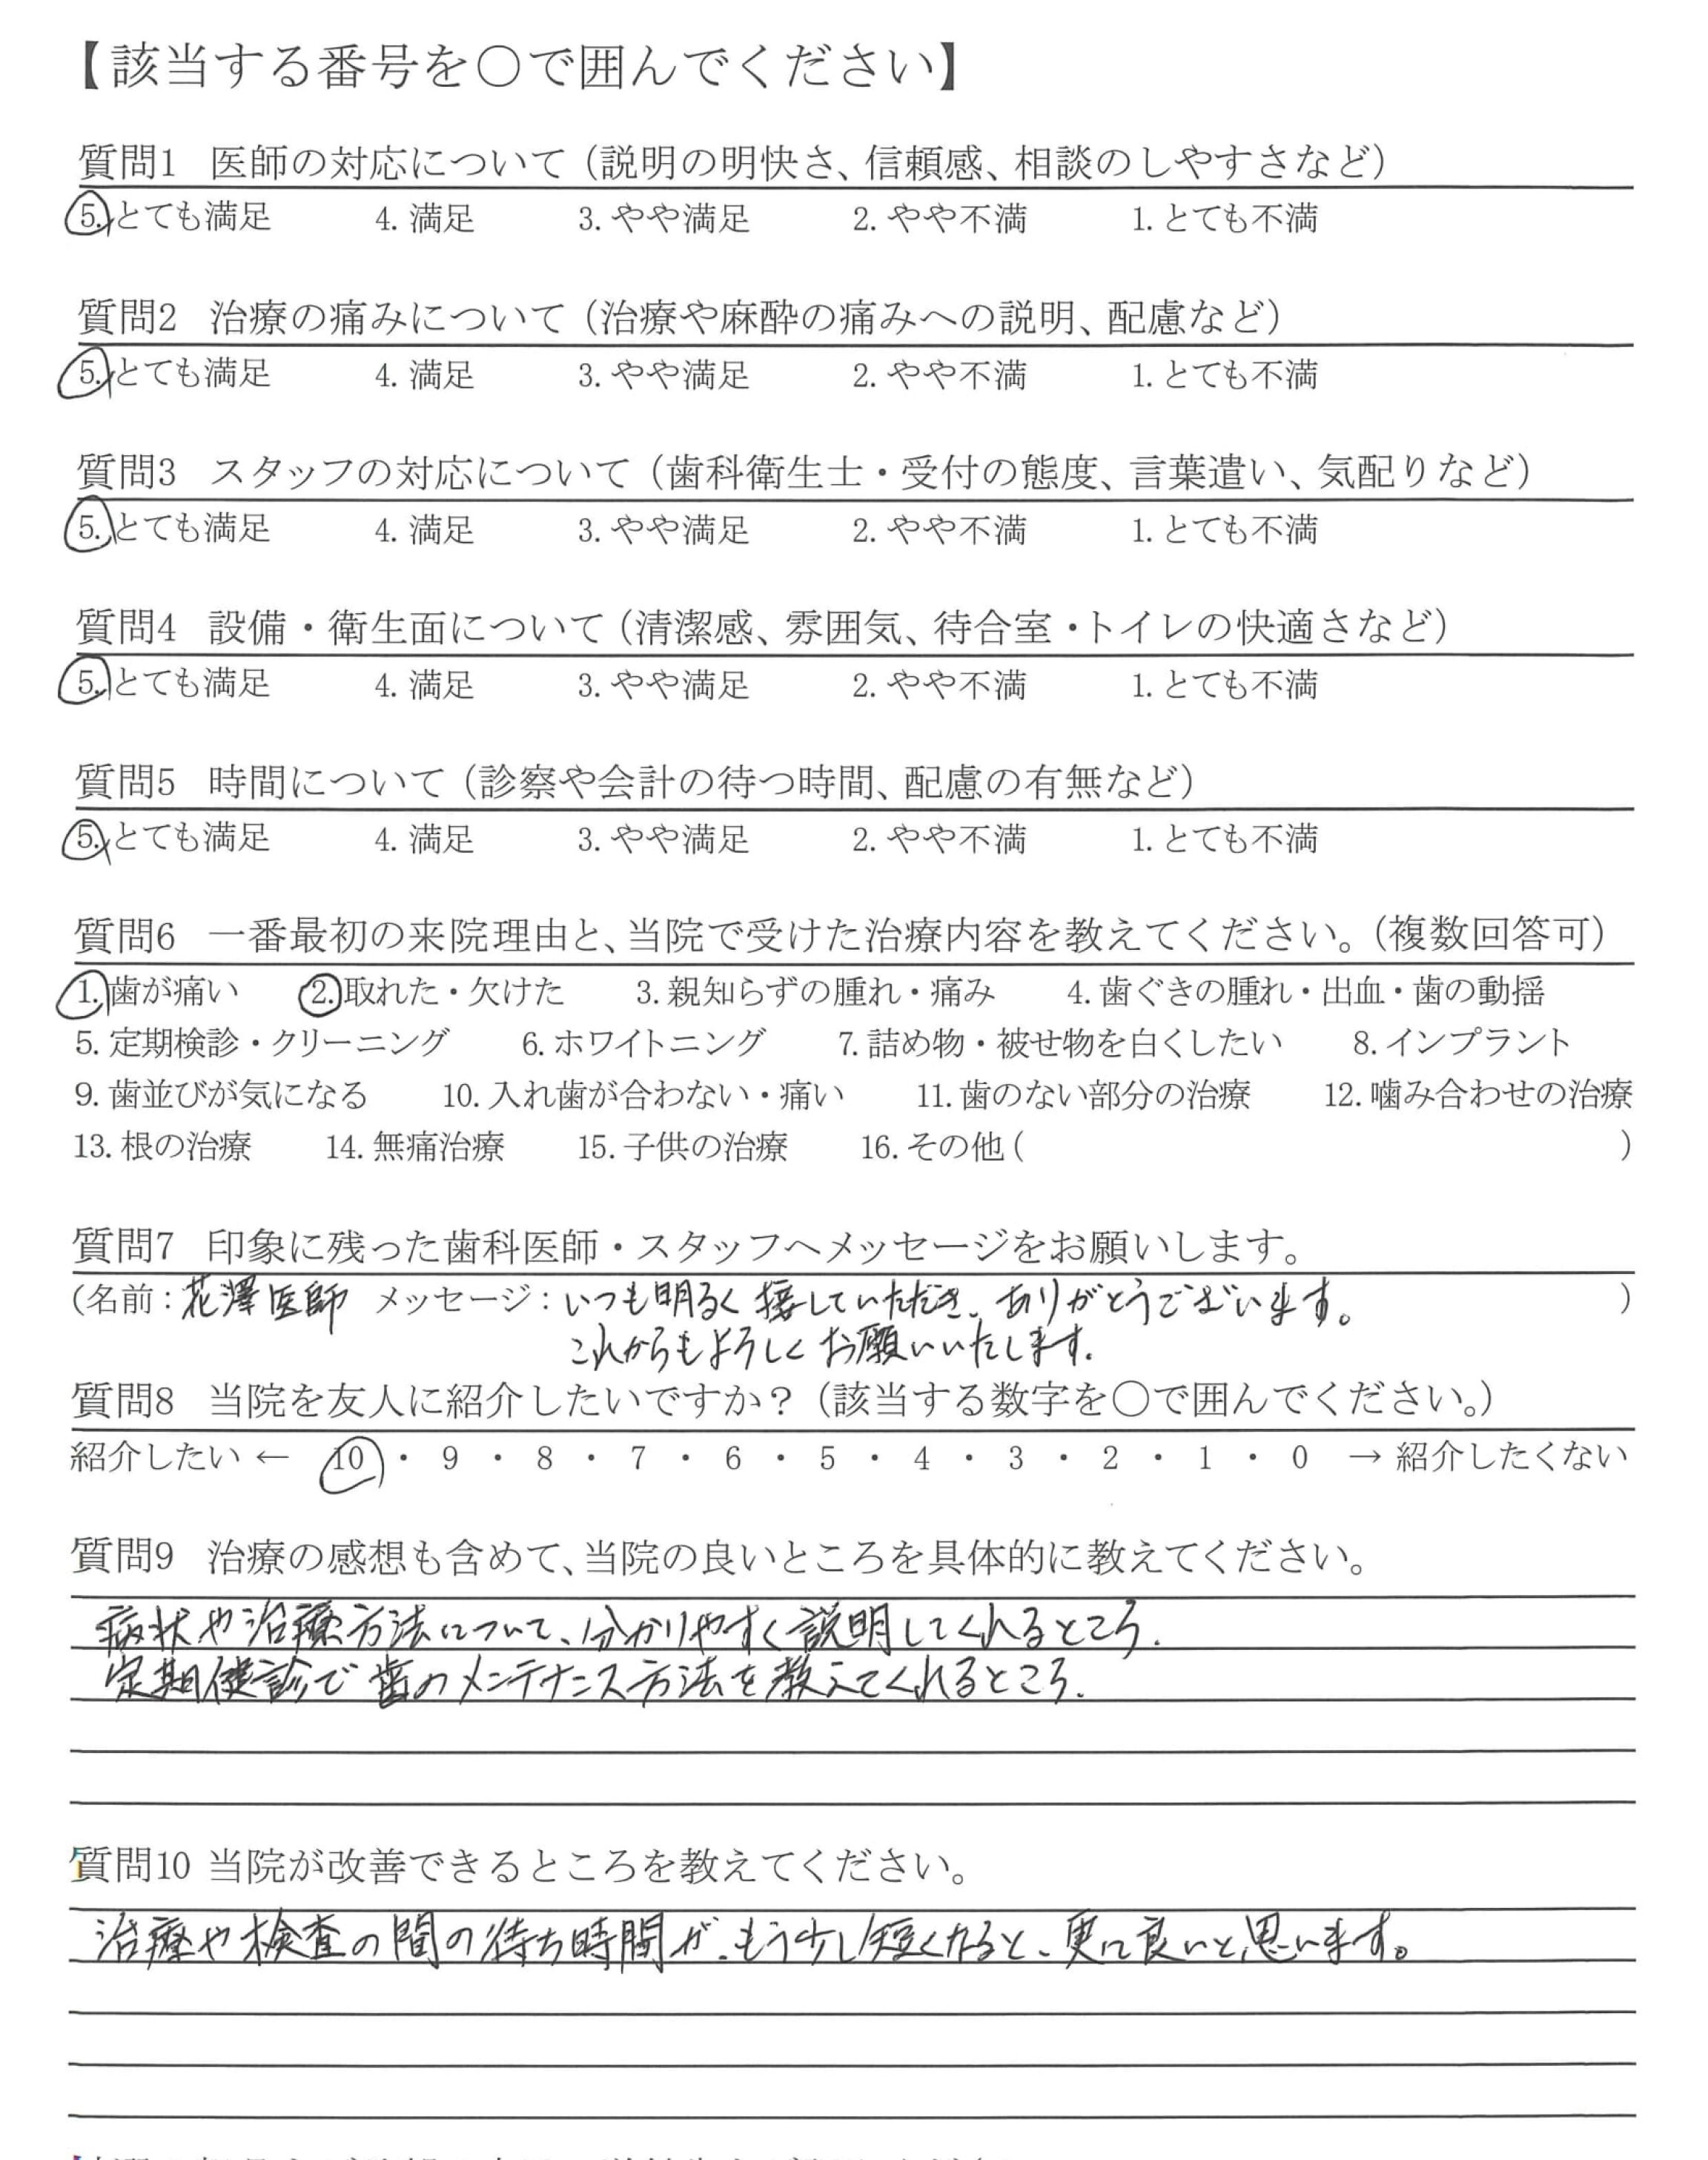 【該当する番号を〇で囲んでください】
質問1 医師の対応について（説明の明快さ、信頼感、相談のしやすさなど）
5.とても満足 4.満足 3.やや満足 2.やや不満 1.とても不満
質問2 治療の痛みについて（治療や麻酔の痛みへの説明、配慮など）
5.とても満足 4.満足 3.やや満足 2.やや不満 1.とても不満
質問3 スタッフの対応について（歯科衛生士・受付の態度、言葉遣い、気配りなど）
5.とても満足 4.満足 3.やや満足 2.やや不満 1.とても不満
質問4 設備・衛生面について（清潔感、雰囲気、待合室・トイレの快適さなど）
5.とても満足 4.満足 3.やや満足 2.やや不満 1.とても不満
質問5 時間について（診察や会計の待つ時間、配慮の有無など）
5.とても満足 4.満足 3.やや満足 2.やや不満 1.とても不満
質問6 一番最初の来院理由と、当院で受けた治療内容を教えてください。（複数回答可）
1.歯が痛い 2.取れた・欠けた 3.親知らずの腫れ・痛み 4.歯ぐきの腫れ・出血・歯の動揺
5.定期検診・クリーニング 6.ホワイトニング 7.詰め物・被せ物を白くしたい 8.インプラント
9.歯並びが気になる 10.入れ歯が合わない・痛い 11.歯のない部分の治療 12.噛み合わせの治療
13.根の治療 14.無痛治療 15.子供の治療 16.その他（ ）
質問7 印象に残った歯科医師・スタッフへメッセージをお願いします。
（名前：花澤医師 メッセージ：いつも明るく接していただき、ありがとうございます。 ）
これからもよろしくお願いいたします。
質問8 当院を友人に紹介したいですか？（該当する数字を〇で囲んでください。）
紹介したい ← 10 ・ 9 ・ 8 ・ 7 ・ 6 ・ 5 ・ 4 ・ 3 ・ 2 ・ 1 ・ 0 → 紹介したくない
質問9 治療の感想も含めて、当院の良いところを具体的に教えてください。
病状や治療方法について、分かりやすく説明してくれるところ.
定期健診で歯のメンテナンス方法を教えてくれるところ.
質問10 当院が改善できるところを教えてください。
治療や検査の間の待ち時間が、もう少し短くなると、更に良いと思います。